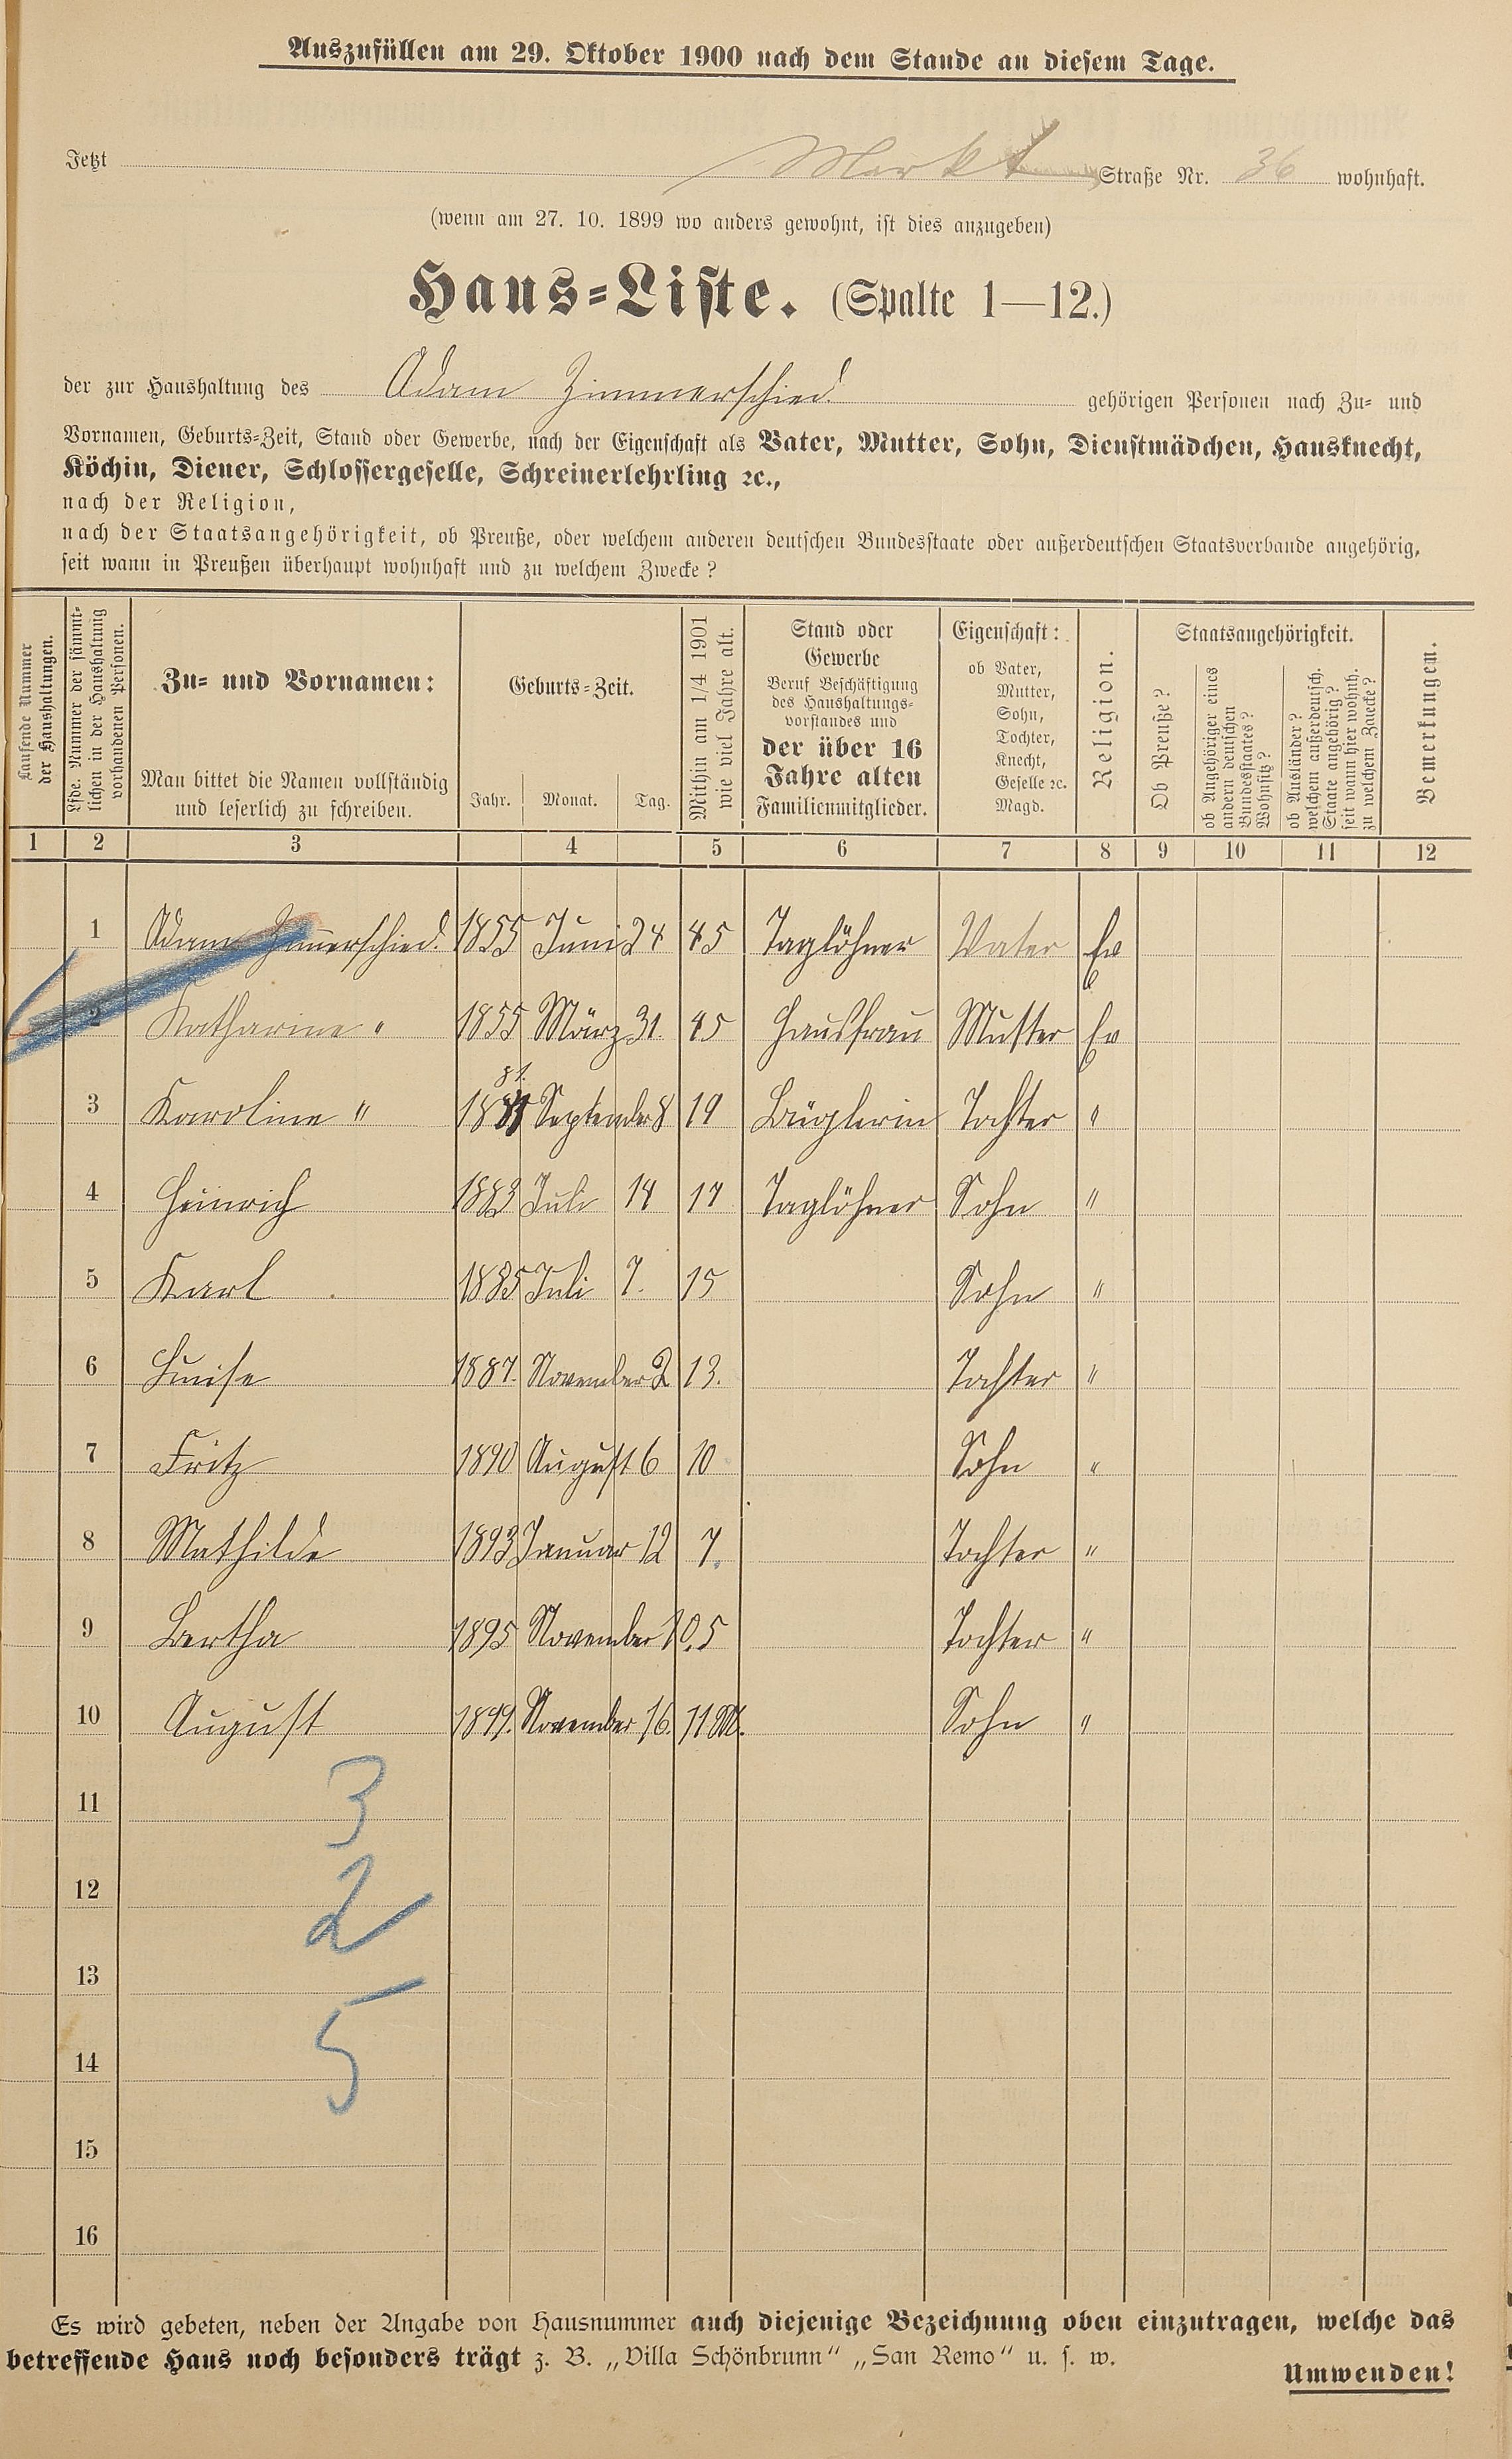 Auszufüllen am 29. Oktober 1900 nach dem Stande an diesem Tage.
Jetzt Markt Straße Nr. 36 wohnhaft.
(wenn am 27. 10. 1899 wo anders gewohnt, ist dies anzugeben)
Haus-Liste. (Spalte 1—12.)
der zur Haushaltung des Adam Zimmerschied gehörigen Personen nach Zu- und
Vornamen, Geburts-Zeit, Stand oder Gewerbe, nach der Eigenschaft als Vater, Mutter, Sohn, Dienstmädchen, Hausknecht,
Köchin, Diener, Schlossergeselle, Schreinerlehrling ꝛc.,
nach der Religion,
nach der Staatsangehörigkeit, ob Preuße, oder welchem anderen deutschen Bundesstaate oder außerdeutschen Staatsverbande angehörig,
seit wann in Preußen überhaupt wohnhaft und zu welchem Zwecke?
Laufende Nummer
der Haushaltungen.
Lfde. Nummer der sämmt-
lichen in der Haushaltung
vorhandenen Personen.
Zu- und Vornamen:
Man bittet die Namen vollständig
und leserlich zu schreiben.
Geburts-Zeit.
Jahr. Monat. Tag.
Mithin am 1/4 1901
wie viel Jahre alt.
Stand oder
Gewerbe
Beruf Beschäftigung
des Haushaltungs-
vorstandes und
der über 16
Jahre alten
Familienmitglieder.
Eigenschaft:
ob Vater,
Mutter,
Sohn,
Tochter,
Knecht,
Geselle ꝛc.
Magd.
Religion.
Staatsangehörigkeit.
Ob Preuße?
ob Angehöriger eines
andern deutschen
Bundesstaates?
Wohnsitz?
ob Ausländer?
welchem außerdeutsch.
Staate angehörig?
seit wann hier wohnh.
zu welchem Zwecke?
Bemerkungen.
1 2 3 4 5 6 7 8 9 10 11 12
1 Adam Zimmerschied. 1855 Juni 24 45 Taglöhner Vater Ev
2 Katharine " 1855 März 31. 45 Hausfrau Mutter Ev
81.
3 Karoline " 1881 September 8 19 Büglerin Tochter "
4 Heinrich 1883 Juli 14 17 Taglöhner Sohn "
5 Karl 1885 Juli 7. 15 Sohn "
6 Luise 1887. November 2 13. Tochter "
7 Fritz 1890 August 6 10 Sohn "
8 Mathilde 1893 Januar 12 7. Tochter "
9 Bertha 1895 November 10. 5 Tochter "
10 August 1899. November 16. 11 M. Sohn "
11 3
12 2
13
14 5
15
16
Es wird gebeten, neben der Angabe von Hausnummer auch diejenige Bezeichnung oben einzutragen, welche das
betreffende Haus noch besonders trägt z. B. „Villa Schönbrunn“ „San Remo“ u. s. w.
Umwenden!